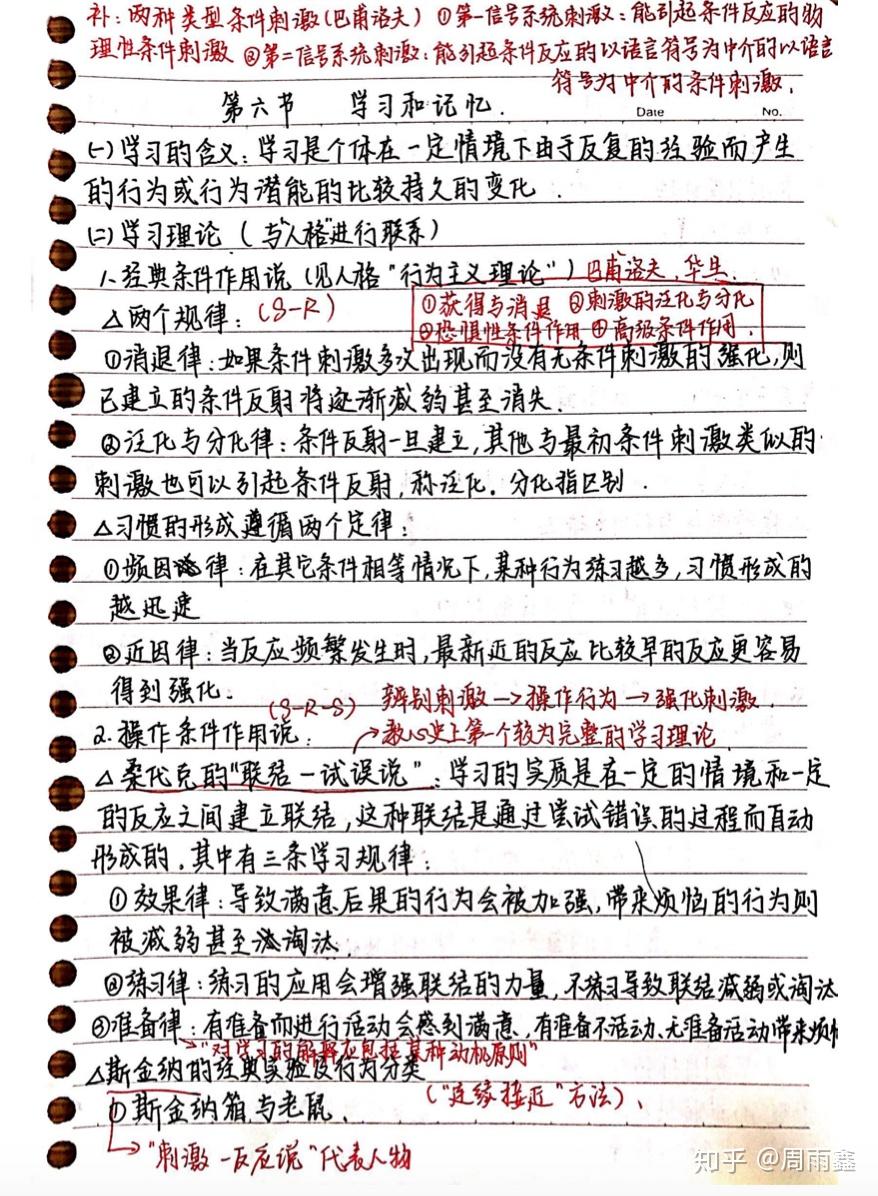 补：两种类型条件刺激（巴甫洛夫）①第一信号系统刺激：能引起条件反应的物
理性条件刺激 ②第二信号系统刺激：能引起条件反应的以语言符号为中介的以语言
符号为中介的条件刺激.
第六节 学习和记忆.
Date No.
(一)学习的含义：学习是个体在一定情境下由于反复的经验而产生
的行为或行为潜能的比较持久的变化.
(二)学习理论（与“人格”进行联系）
1.经典条件作用说（见人格“行为主义理论”）巴甫洛夫，华生.
△两个规律：(S-R) ①获得与消退 ②刺激的泛化与分化
③恐惧性条件作用 ④高级条件作用.
①消退律：如果条件刺激多次出现而没有无条件刺激的强化，则
已建立的条件反射将逐渐减弱甚至消失.
②泛化与分化律：条件反射一旦建立，其他与最初条件刺激类似的
刺激也可以引起条件反射，称泛化.分化指区别.
△习惯的形成遵循两个定律：
①频因律：在其它条件相等情况下，某种行为练习越多，习惯形成的
越迅速
②近因律：当反应频繁发生时，最新近的反应比较早的反应更容易
得到强化.
(S-R-S) 辨别刺激→操作行为→强化刺激.
2.操作条件作用说： →教心史上第一个较为完整的学习理论
△桑代克的“联结-试误说”：学习的实质是在一定的情境和一定
的反应之间建立联结，这种联结是通过尝试错误的过程而自动
形成的.其中有三条学习规律：
①效果律：导致满意后果的行为会被加强，带来烦恼的行为则
被减弱甚至淘汰.
②练习律：练习的应用会增强联结的力量，不练习导致联结减弱或淘汰
③准备律：有准备而进行活动会感到满意，有准备不活动、无准备活动带来烦恼
→“对学习的解释应包括某种动机原则”
△斯金纳的经典实验及行为分类
①斯金纳箱与老鼠. （“连续接近”方法）、
→“刺激-反应说”代表人物
知乎 @周雨鑫